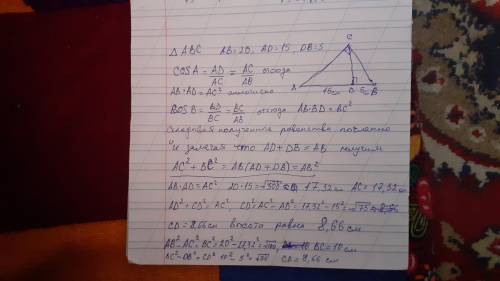 △ABC AB=20, AD=15, DB=5
C
COSA = AD/AC = AC/AB отсюда
AB·AD=AC² аналогично
A 15см D 5см B
COSB = BD/BC = BC/AB отсюда AB·BD=BC²
Складывая полученные равенства почленно
и замечая что AD+DB=AB получим
AC²+BC²=AB(AD+DB)=AB²
AB·AD=AC² 20·15=√300 = 17,32см AC=17,32см
AD²+CD²=AC² CD²=AC²-AD²=17,32²-15²=√75=8,66
CD=8,66см высота равна 8,66см
AB²-AC²=BC²=20²-17,32²=√100, BC=10см
BC²-DB²=CD² 10²-5²=√75 CD=8,66см